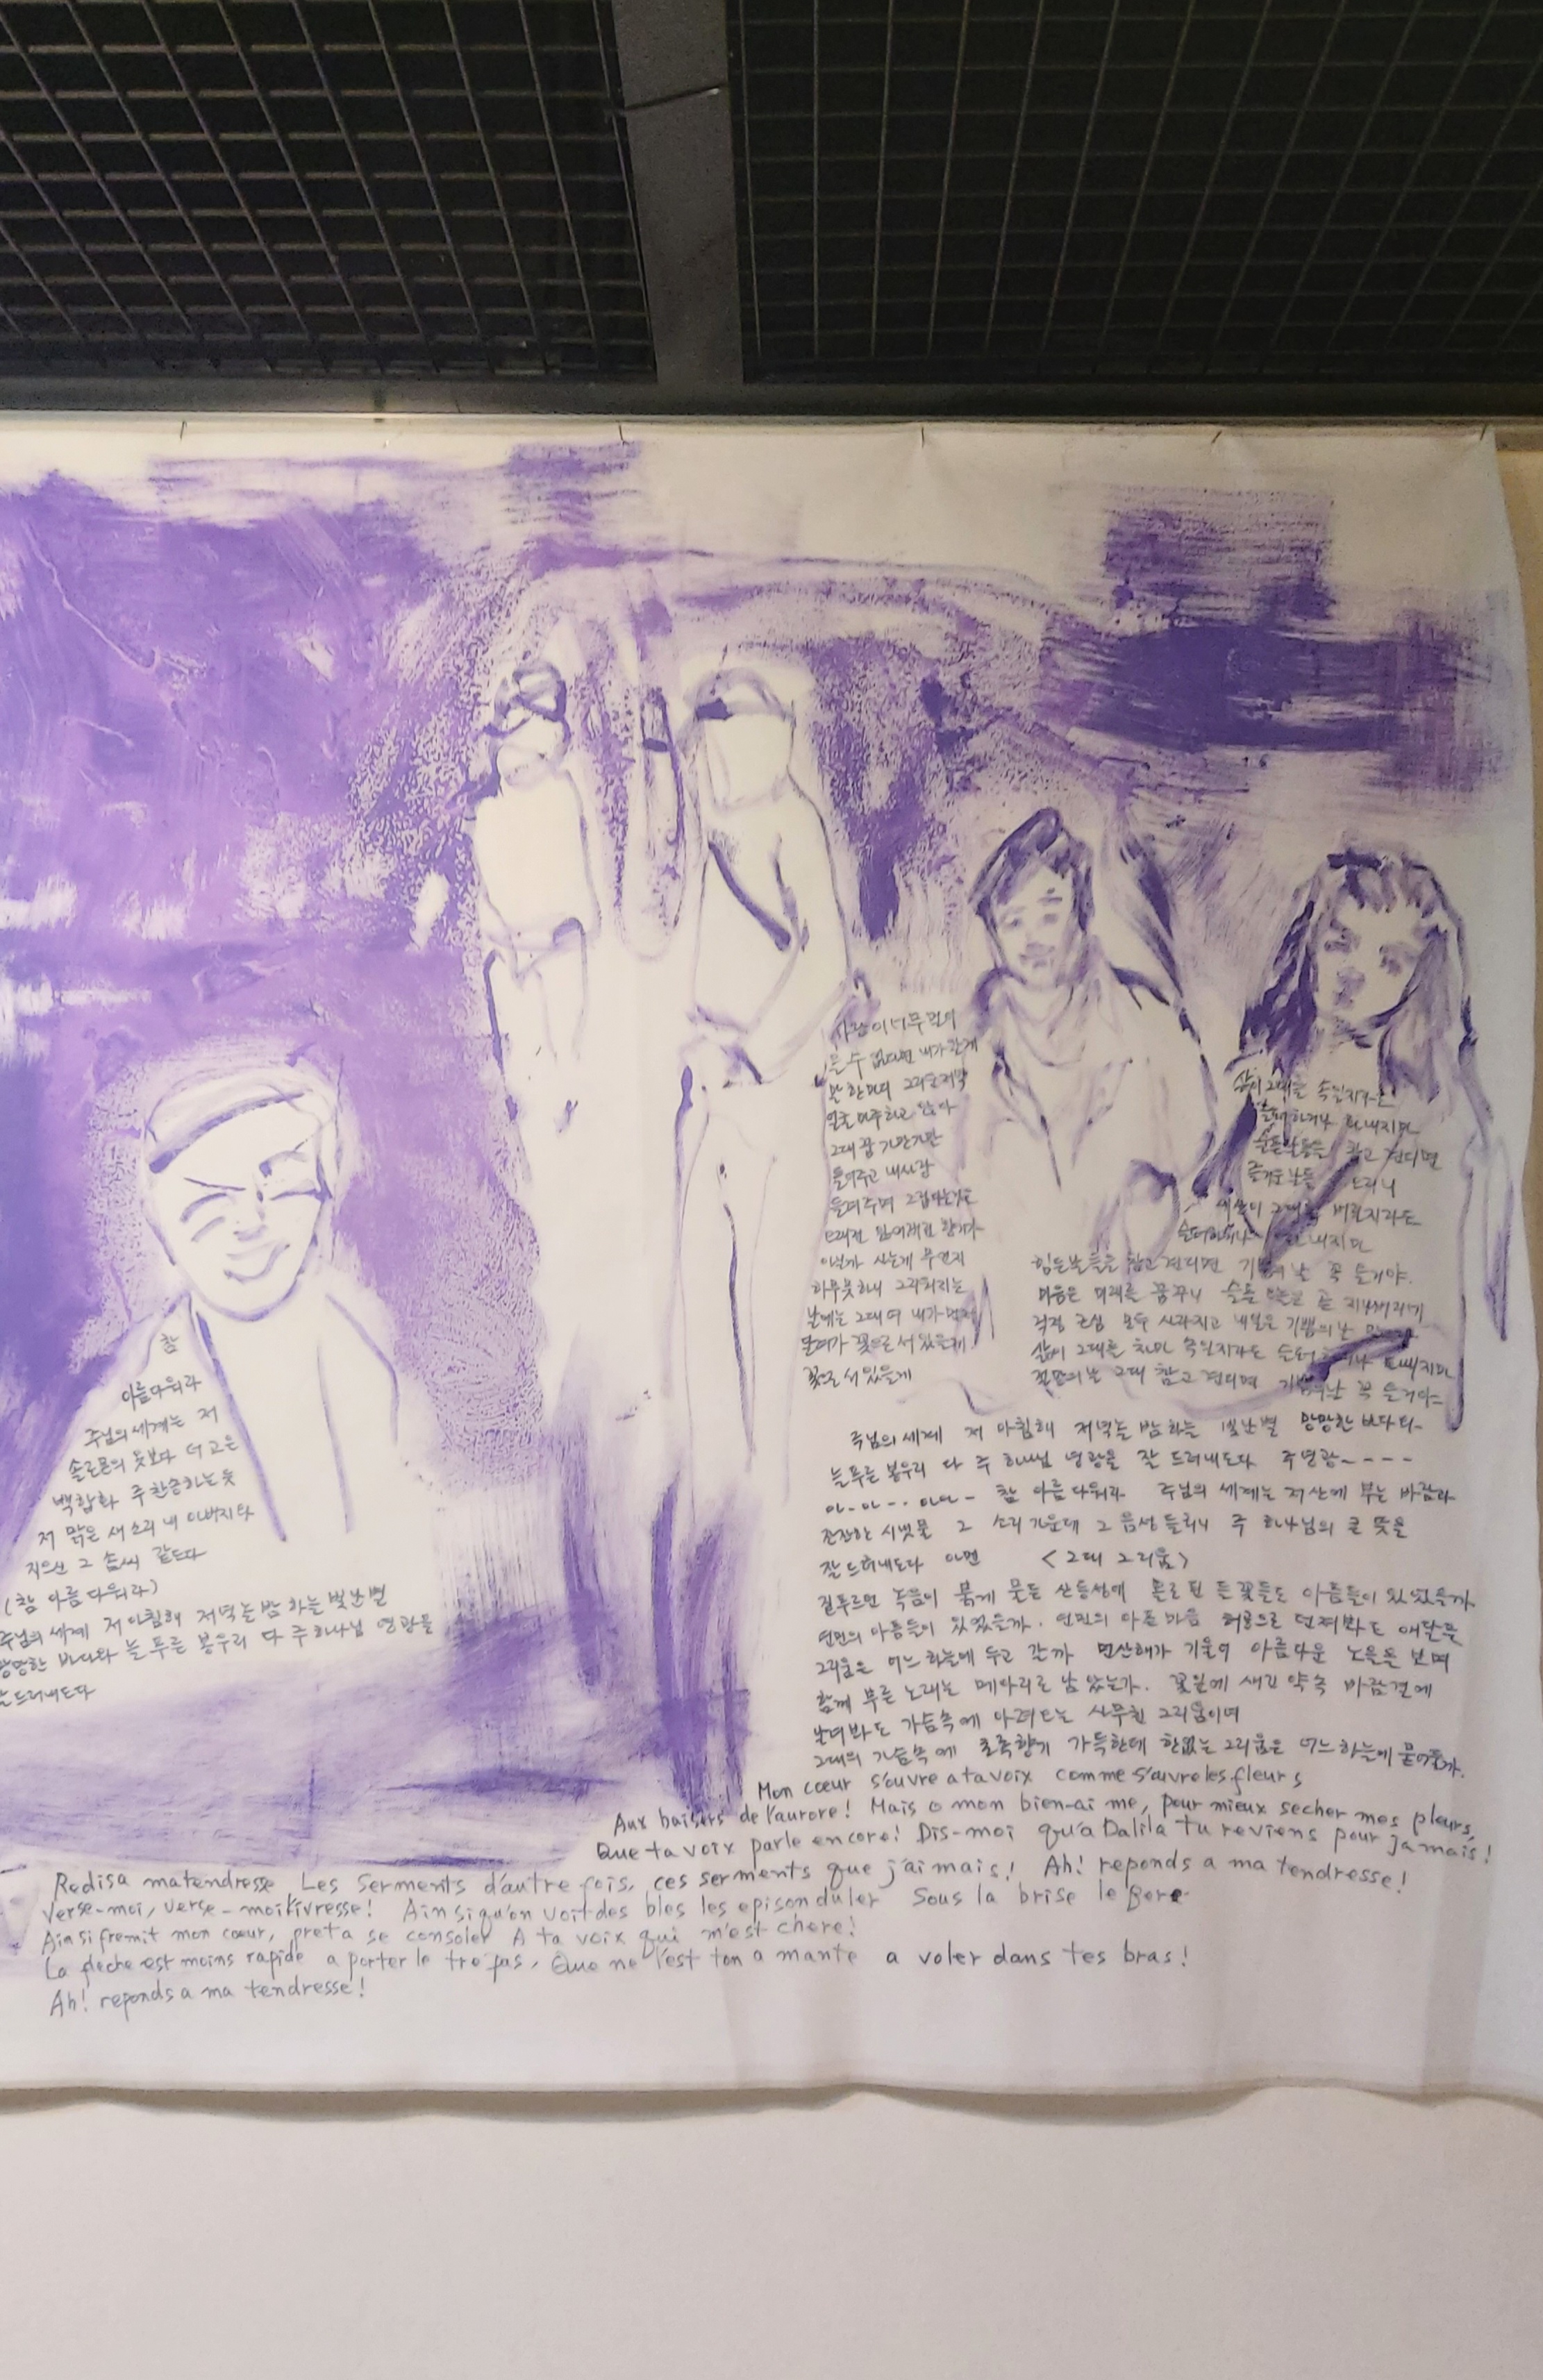 참
아름다워라
주님의 세계는 저
솔로몬의 옷보다 더 고은
백합화 주 찬송하는 듯
저 맑은 새소리 내 아버지의
지으신 그 솜씨 같도다
(참 아름다워라)
주님의 세계 저 아침해 저녁놀 밤 하늘 빛난별
망망한 바다와 늘 푸른 봉우리 다 주 하나님 영광을
드러내도다
사랑이 너무 멀어
올 수 없다면 내가 갈게
말 한마디 그리운 저녁
얼굴 마주하고 앉아
그대 꿈 가만가만
들어주고 내 사랑
들려주며
하루 못하니
날에는 그대여 내가 먼저
달려가 꽃으로 서 있을게
꽃으로 서 있을게
삶이 그대를 속일지라도
슬퍼하거나 화내지마
슬픈 날들을 참고 견디면
즐거운 날들 오리니
세상이 그대를 버릴지라도
슬퍼하거나 화내지마
힘든 날들을 참고 견디면 기쁨의 날 꼭 올거야.
마음은 미래를 꿈꾸니 슬픈 곧 지나버리네
걱정 근심 모두 사라지고 내일은 기쁨의 날
삶이 그대를 차마 속일지라도 슬퍼하거나 화내지마
절망의 날 그대 참고 견디면 기쁨의 날 꼭 올거야
주님의 세계 저 아침해 저녁놀 밤하늘 빛난별 망망한 바다와
늘 푸른 봉우리 다 주 하나님 영광을 잘 드러내도다 주 영광~----
아-아-.. 아아- 참 아름다워라 주님의 세계는 저 산에 부는 바람과
잔잔한 시냇물 그 소리 가운데 그 음성 들리니 주 하나님의 큰 뜻을
잘 드러내도다 아멘 <그대 그리움>
짙푸르던 녹음이 붉게 물든 산등성에 홀로 핀 들꽃들도 아픔들이 있었을까
연민의 아픔들이 있었을까. 연민의 아픈 마음 허공으로 던져봐도 애달픈
그리움은 어느 하늘에 두고 갈까 먼산해가 기울어 아름다운 노을을 보며
함께 부른 노래는 메아리로 남았는가. 꽃잎에 새긴 약속 바람결에
날려봐도 가슴속에 아려오는 사무친 그리움이여
그대의 가슴속에 초록향기 가득한데 한없는 그리움은 어느 하늘에 묻어둘까.
Mon cœur s'ouvre a ta voix comme s'ouvre les fleurs
Aux baisers de l'aurore! Mais o mon bien-ai me, pour mieux secher mes pleurs,
Que ta voix parle encore! Dis-moi qu'a Dalila tu reviens pour jamais!
Redisa matendresse Les serments d'autre fois, ces serments que j'aimais! Ah! reponds a ma tendresse!
Verse-moi, verse-moil'ivresse! Ainsiqu'on voit des bles les episonduler Sous la brise le gere
Ainsi fremit mon cœur, preta se consoler A ta voix qui m'est chere!
La fleche est moins rapide a porter le tre pas, Que ne l'est ton a mante a voler dans tes bras!
Ah! reponds a ma tendresse!